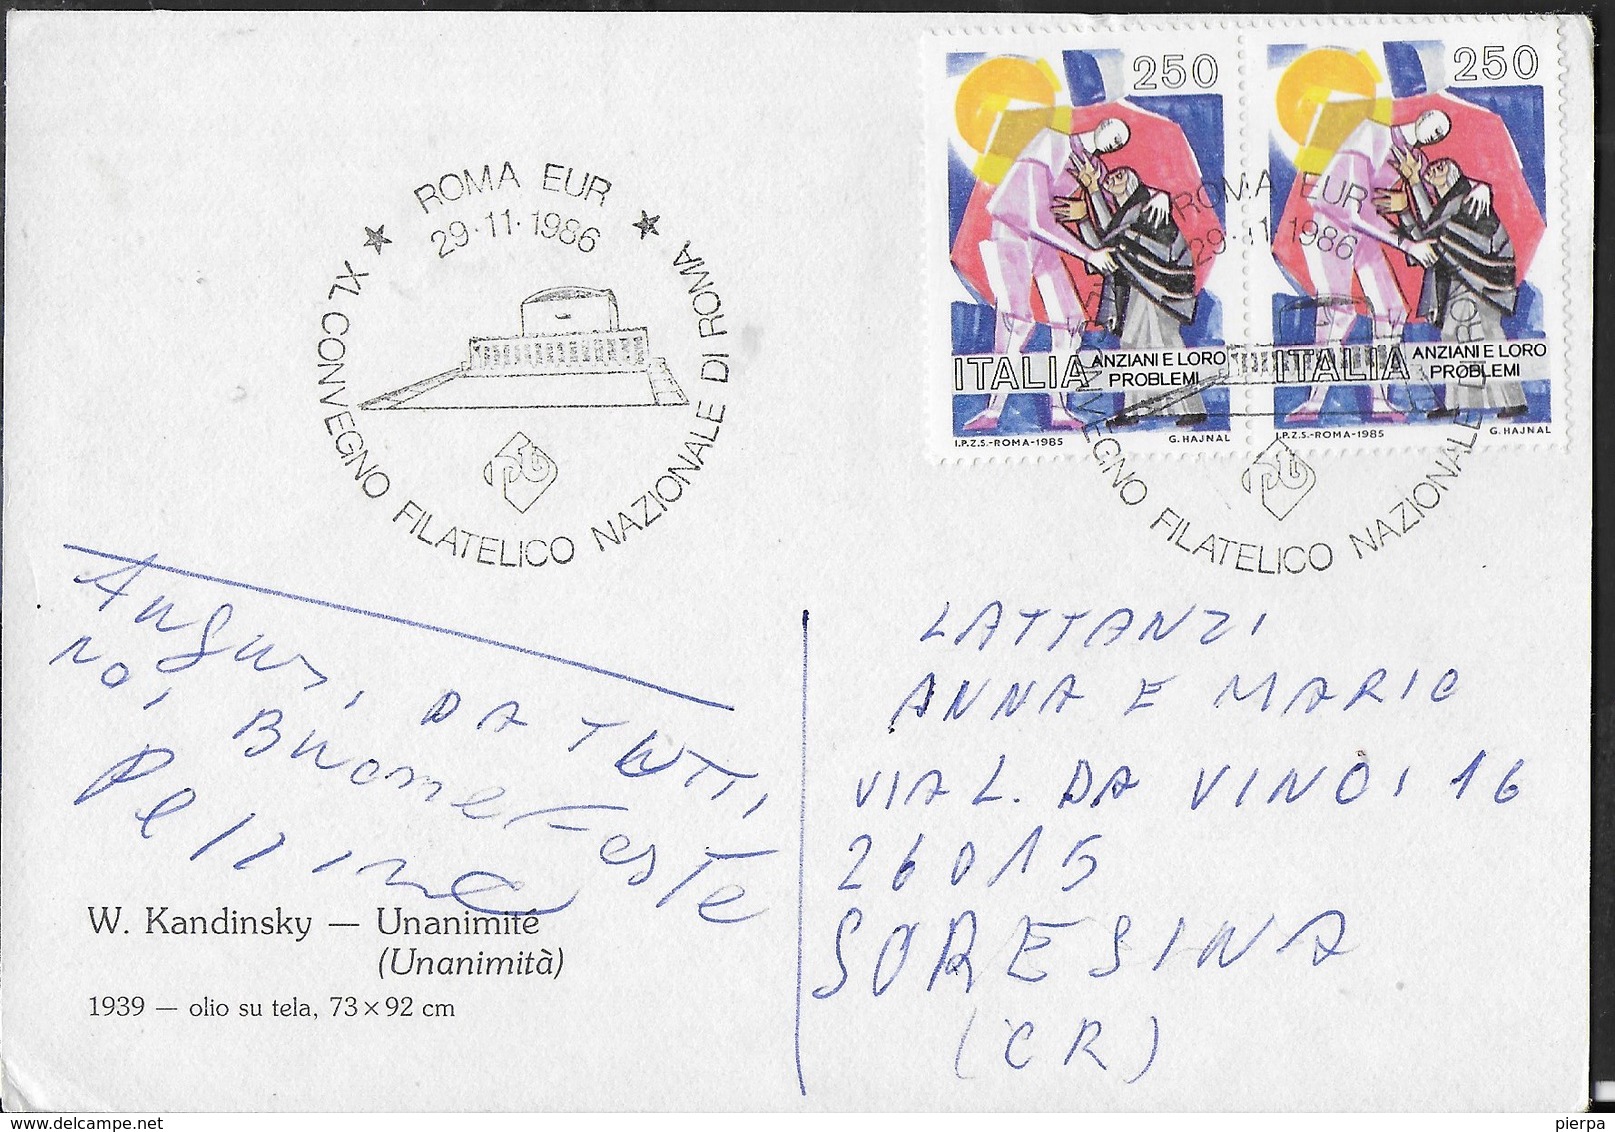 250
250
ITALIA
ANZIANI E LORO
PROBLEMI
I.P.Z.S.-ROMA-1985
G. HAJNAL
ITALIA
ANZIANI E LORO
PROBLEMI
I.P.Z.S.-ROMA-1985
G. HAJNAL
ROMA EUR
29·11·1986
XL CONVEGNO FILATELICO NAZIONALE DI ROMA
ROMA EUR
29·11·1986
CONVEGNO FILATELICO NAZIONALE DI ROMA
Auguri DA TUTTI
NOI BUONE FESTE
LATTANZI
ANNA E MARIO
VIA L. DA VINCI 16
26015
SORESINA
(CR)
W. Kandinsky — Unanimité
(Unanimità)
1939 — olio su tela, 73 × 92 cm
pierpa